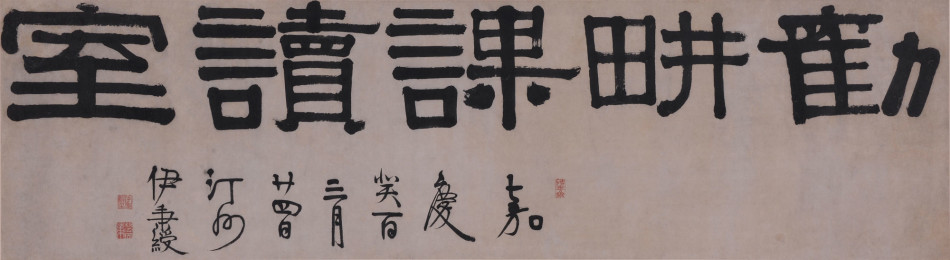 勸畊課讀室
嘉
慶
癸酉
三月
廿四日
汀州
伊秉綬